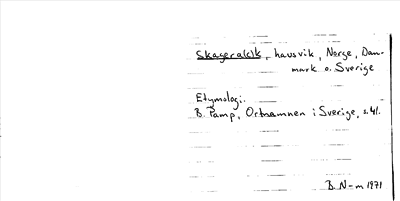 Skagera(c)k, havsvik, Norge, Dan-
mark o. Sverige
Etymologi:
B. Pamp, Ortnamnen i Sverige, s. 41.
B N-m 1971